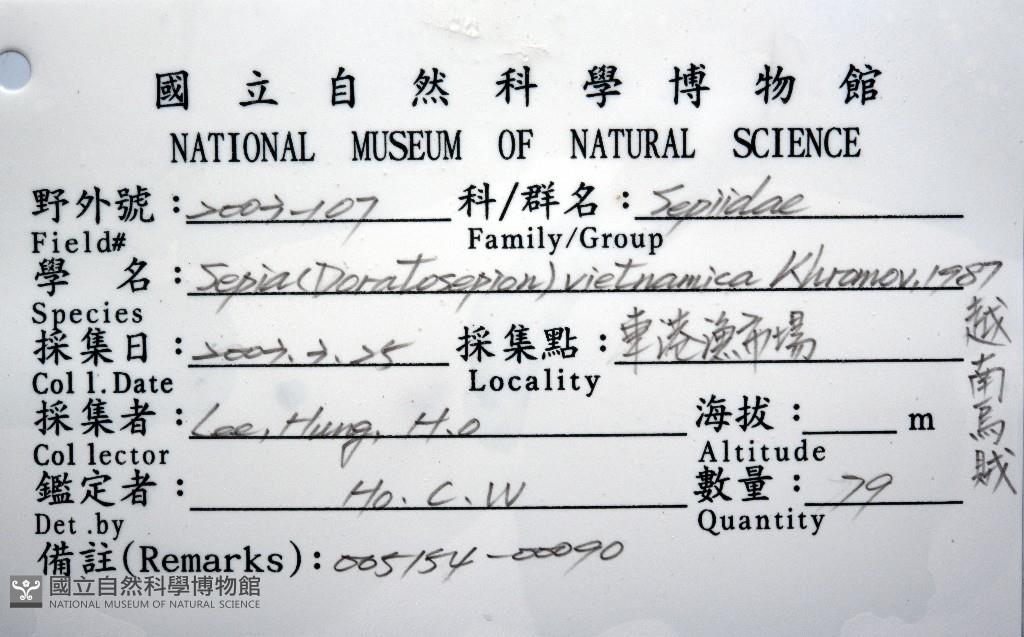 國立自然科學博物館
NATIONAL MUSEUM OF NATURAL SCIENCE
野外號：2003-107 科/群名：Sepiidae
Field# Family/Group
學名：Sepia (Doratosepion) vietnamica Khromov, 1987
Species
越南烏賊
採集日：2003.3.25 採集點：東港漁市場
Coll.Date Locality
採集者：Lee, Hung, Ho 海拔： m
Collector Altitude
鑑定者：Ho. C. W 數量：79
Det.by Quantity
備註(Remarks)：005154-00090
國立自然科學博物館
NATIONAL MUSEUM OF NATURAL SCIENCE